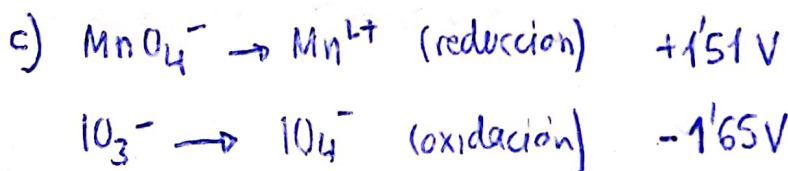 c) MnO₄⁻ → Mn²⁺ (reducción) +1'51 V
IO₃⁻ → IO₄⁻ (oxidación) -1'65V